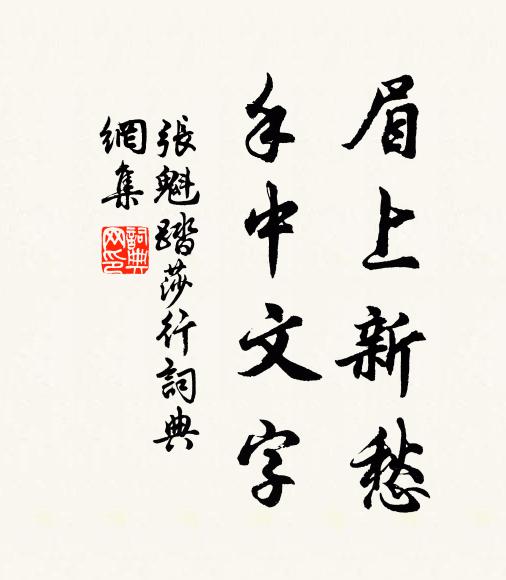 眉上新愁
手中文字
張魁踏莎行詞典
網集
詞典网印